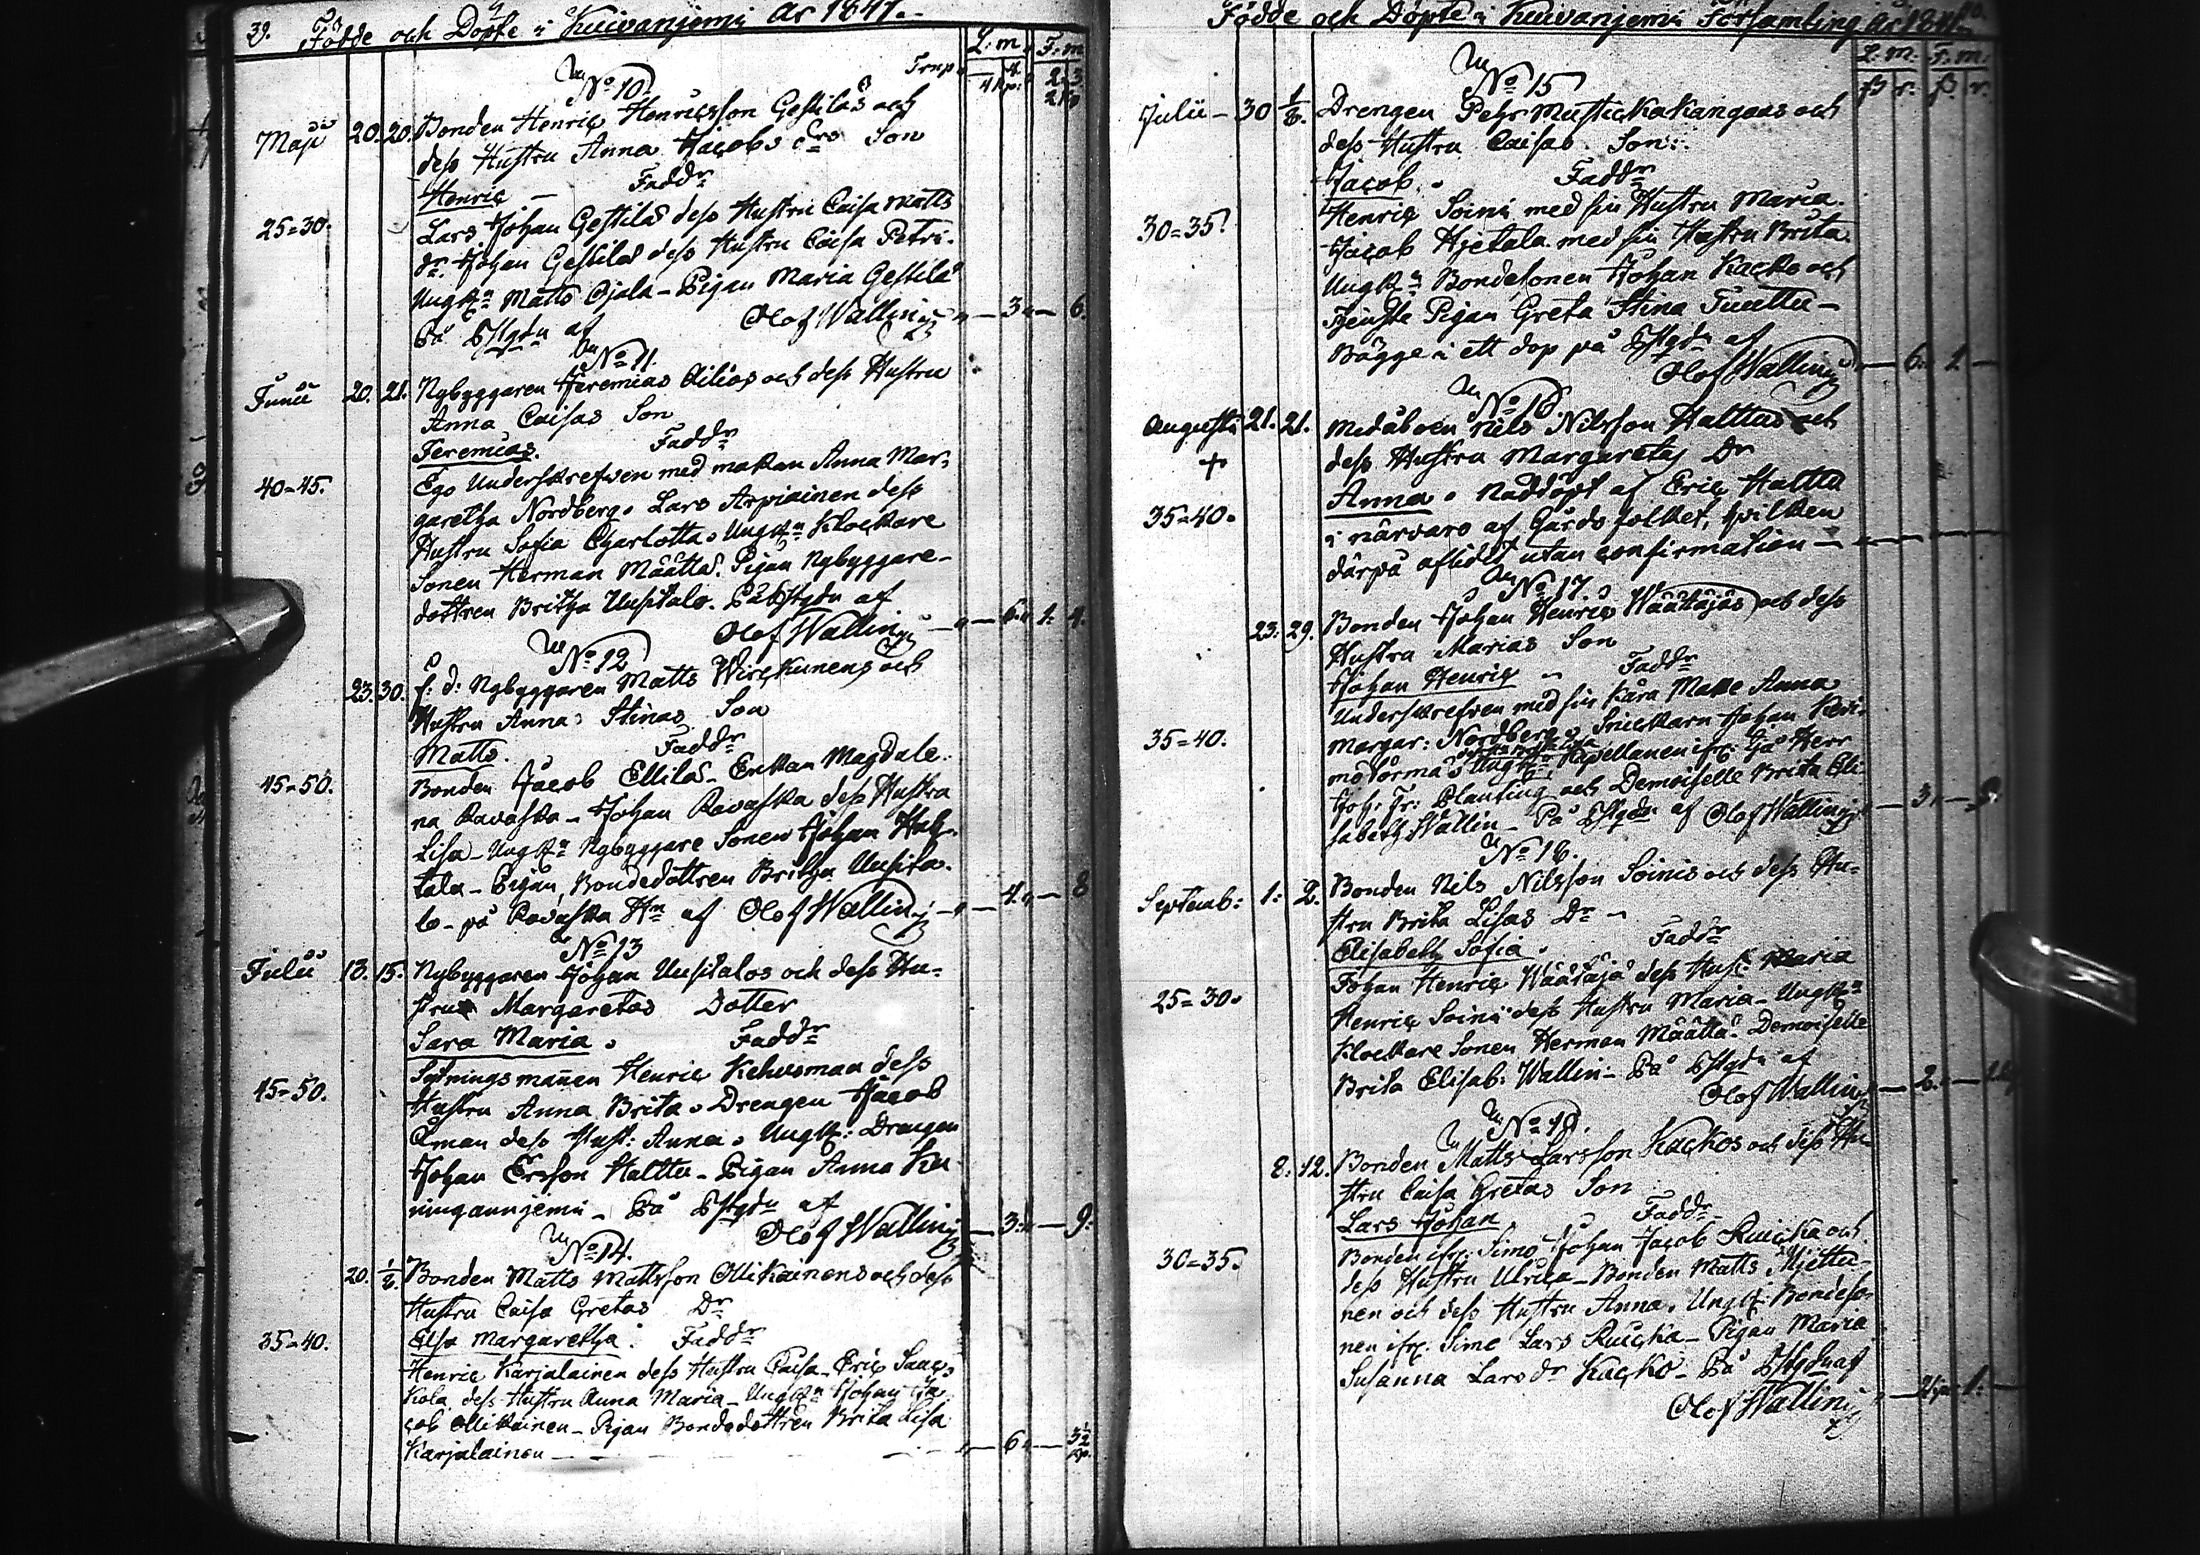 39. Födde och Döpte i Kuivanjemi År 1841.
L: m. F: m.
No 10.
Maji 20. 20. Bonden Henric Henricsson Gestilas och
dess Hustru Anna Jacobs Son
Henric — Faddr
25=30. Lars Johan Gestilas dess Hustru Caisa Matts
dr. Johan Gestilas dess Hustru Caisa Petri-
Ungk:n Matts Ojala – Pigan Maria Gestilas
På Pstgdn af Olof Wallin — 3 — 6.
No 11.
Junii 20. 21. Nybyggaren Jeremias Ailios och dess Hustru
Anna Caisas Son
Jeremias. Faddr
40=45. Ego Underskrefven med makan Anna Mar-
garetha Nordberg. Lars Arpiainen dess
Hustru Sofia Charlotta. Ungk:n Klockare
Sonen Herman Määttä. Pigan Nybyggare-
dottren Britha Uusitalo. På Pstgdn af
Olof Wallin — 6. 1. 4.
No 12
23. 30. f: d: Nybyggaren Matts Wirckunens och
Hustru Anna Stinas Son
Matts. Faddr
45=50. Bonden Jacob Ellilä – Enkan Magdale-
na Ravaska – Johan Ravaska dess Hustru
Lisa – Ungk:n Nybyggare Sonen Johan
tala – Pigan, Bondedottren Britha Uusita-
lo – på Ravaska Hn af Olof Wallin — 4. — 8
No 13
Julii 13. 15. Nybyggaren Johan Uusitalos och dess Hu-
stru Margaretas Dotter
Sara Maria. Faddr
45=50. Sytningsmanen Henric Kehusmaa dess
Hustru Anna Brita. Drengen Jacob
Öman dess Hust: Anna. Ungk: Drengen
Johan Ersson Halttu – Pigan Anna Ku-
ningaanjemi – På Pstgdn af
Olof Wallin — 3. — 9.
No 14.
20. 1/8. Bonden Matts Mattsson Ollikainens och dess
Hustru Caisa Gretas Dr
Elsa Margaretha. Faddr
35=40. Henric Karjalainen dess Hustru Caisa – Eric
kola dess Hustru Anna Maria – Ungk:n Johan Ja-
cob Ollikainen – Pigan Bondedottren Brita Lisa
Karjalainen — 6. — 3 1/2 kp.
Födde och Döpte i Kuivanjemi Församling År 1841.
L: m. F: m.
No 15
Julii – 30 1/8. Drengen Pehr Mustickakangaas och
dess Hustru Caisas Son.
Jacob. Faddr
30=35. Henric Soini med sin Hustru Maria.
Jacob Hjetala med sin Hustru Brita
Ungk:n Bondesonen Johan Kacko och
Tjenste Pigan Greta Stina Tuuttu –
Bägge i ett dop på Pstgdn af
Olof Wallin — 6. 1 —
No 16
Augusti 21. 21. Medåboen Nils Nilsson Halttas och
+ dess Hustru Margaretas Dr
35=40. Anna. Nöddöpt af Eric Halttu
i närvaro af Gårdsfolket, hvilken
därpå aflidit utan confirmation —
No 17.
23. 29. Bonden Johan Henric Wäätäjäs och dess
Hustru Marias Son
Johan Henric – Faddr
35=40. Underskrefven med sin kära Make Anna
Margar: Nordberg. Snickarn Johan
Ungk: Kapellanen ifr: Ijå Herr
Joh: Fr: Planting och Demoiselle Brita Eli-
sabeth Wallin – På Pstgdn af Olof Wallin — 3. — 9.
No 18.
Septemb: 1: 2. Bonden Nils Nilsson Soinis och dess Hu-
stru Brita Lisas Dr –
Elisabeth Sofia. Faddr
25=30. Johan Henric Wäätäjä dess Hust: Maria
Henric Soini dess Hustru Maria – Ungk:n
Klockare Sonen Herman Määttä. Demoiselle
Brita Elisab: Wallin – På Pstgdn af
Olof Wallin — 2. —
No 19.
8: 12. Bonden Matts Larsson Kackos och dess Hu-
stru Caisa Gretas Son
Lars Johan Faddr
30=35. Bonden ifr: Simo Johan Jacob Ruicka och
dess Hustru Ulrica – Bonden Matts Miettu-
nen och dess Hustru Anna. Ungk: Bondeso-
nen ifr: Simo Lars Ruicka – Pigan Maria
Susanna Lars dr Kacko – På Pstgdn af
Olof Wallin — 1. —